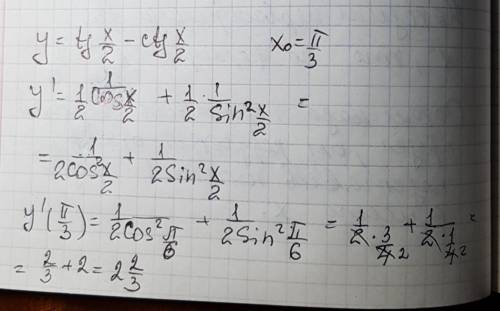 y = tg x/2 - ctg x/2 x₀ = π/3
y' = 1/2 · 1/cos² x/2 + 1/2 · 1/sin² x/2 =
= 1/2cos² x/2 + 1/2sin² x/2
y'(π/3) = 1/2cos² π/6 + 1/2sin² π/6 = 1/2·3/4 2 + 1/2·1/4 2 =
= 2/3 + 2 = 2 2/3